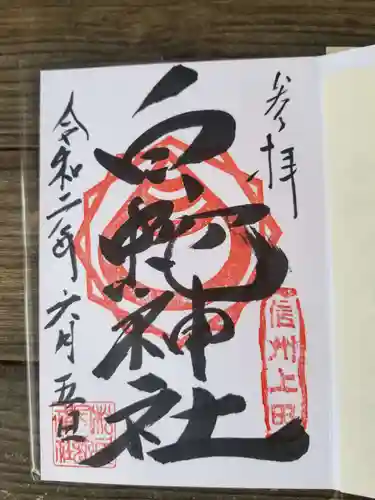 参拝
信州上田
白蛇神社
令和二年六月五日